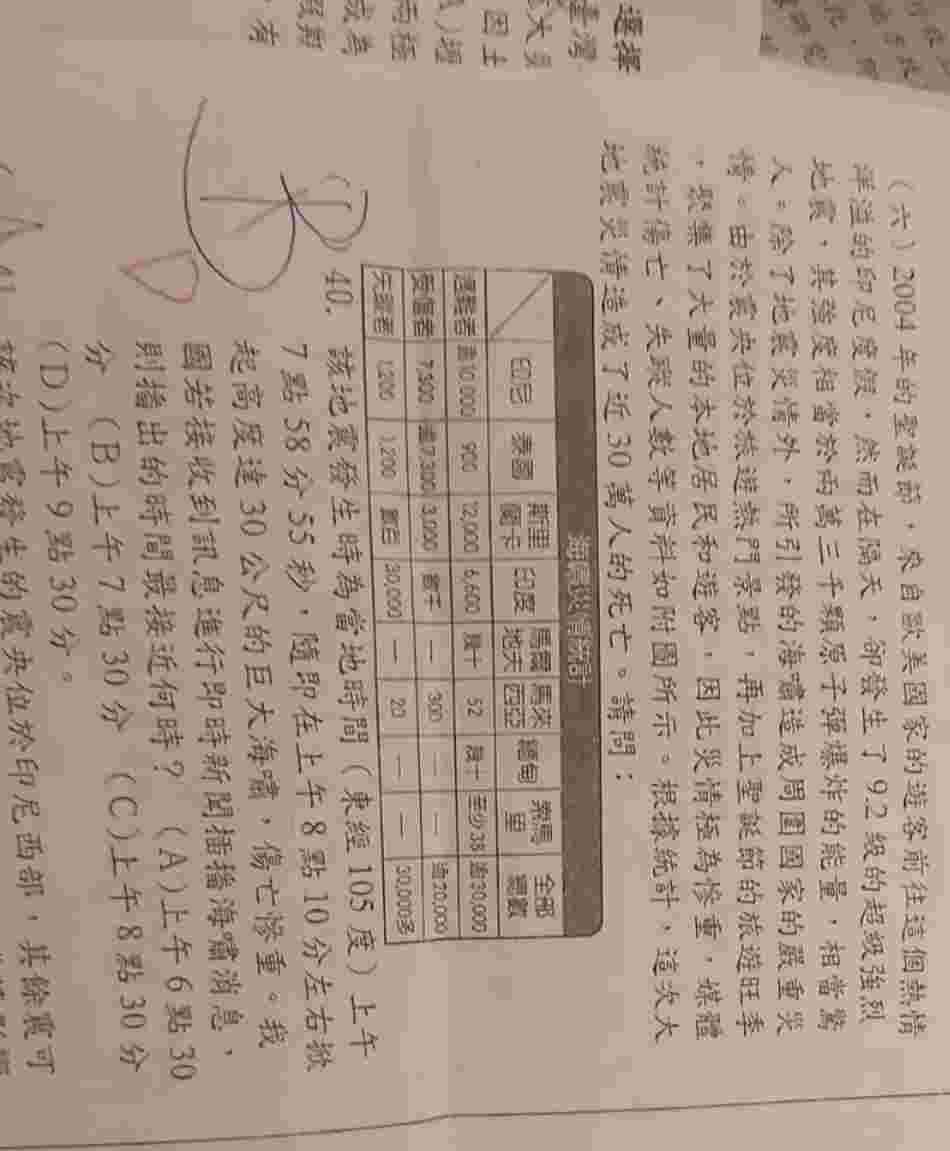 選擇
（六）2004 年的聖誕節，來自歐美國家的遊客前往這個熱情
洋溢的印尼度假，然而在隔天，卻發生了 9.2 級的超級強烈
地震，其強度相當於兩萬三千顆原子彈爆炸的能量，相當驚
人。除了地震災情外，所引發的海嘯造成周圍國家的嚴重災
情。由於震央位於旅遊熱門景點，再加上聖誕節的旅遊旺季
，聚集了大量的本地居民和遊客，因此災情極為慘重，媒體
統計傷亡、失蹤人數等資料如附圖所示。根據統計，這次大
地震災情造成了近 30 萬人的死亡。請問：
印尼 泰國 斯里蘭卡 印度 馬爾地夫 馬來西亞 緬甸 索馬里 全部總數
遇難者 10,000 900 12,000 6,600 幾十 52 幾十 至少38 逾30,000
受傷者 7,500 逾7,300 3,000 數千 — 300 — — 逾20,000
失蹤者 1,200 1,200 數百 30,000 — 20 — — 30,000多
B
40. 該地震發生時為當地時間（東經 105 度）上午
7 點 58 分 55 秒，隨即在上午 8 點 10 分左右掀
起高度達 30 公尺的巨大海嘯，傷亡慘重。我
國若接收到訊息進行即時新聞插播海嘯消息，
則播出的時間最接近何時？ (A)上午 6 點 30
分 (B)上午 7 點 30 分 (C)上午 8 點 30 分
(D)上午 9 點 30 分。
41. 該次地震發生的震央位於印尼西部，其餘震可